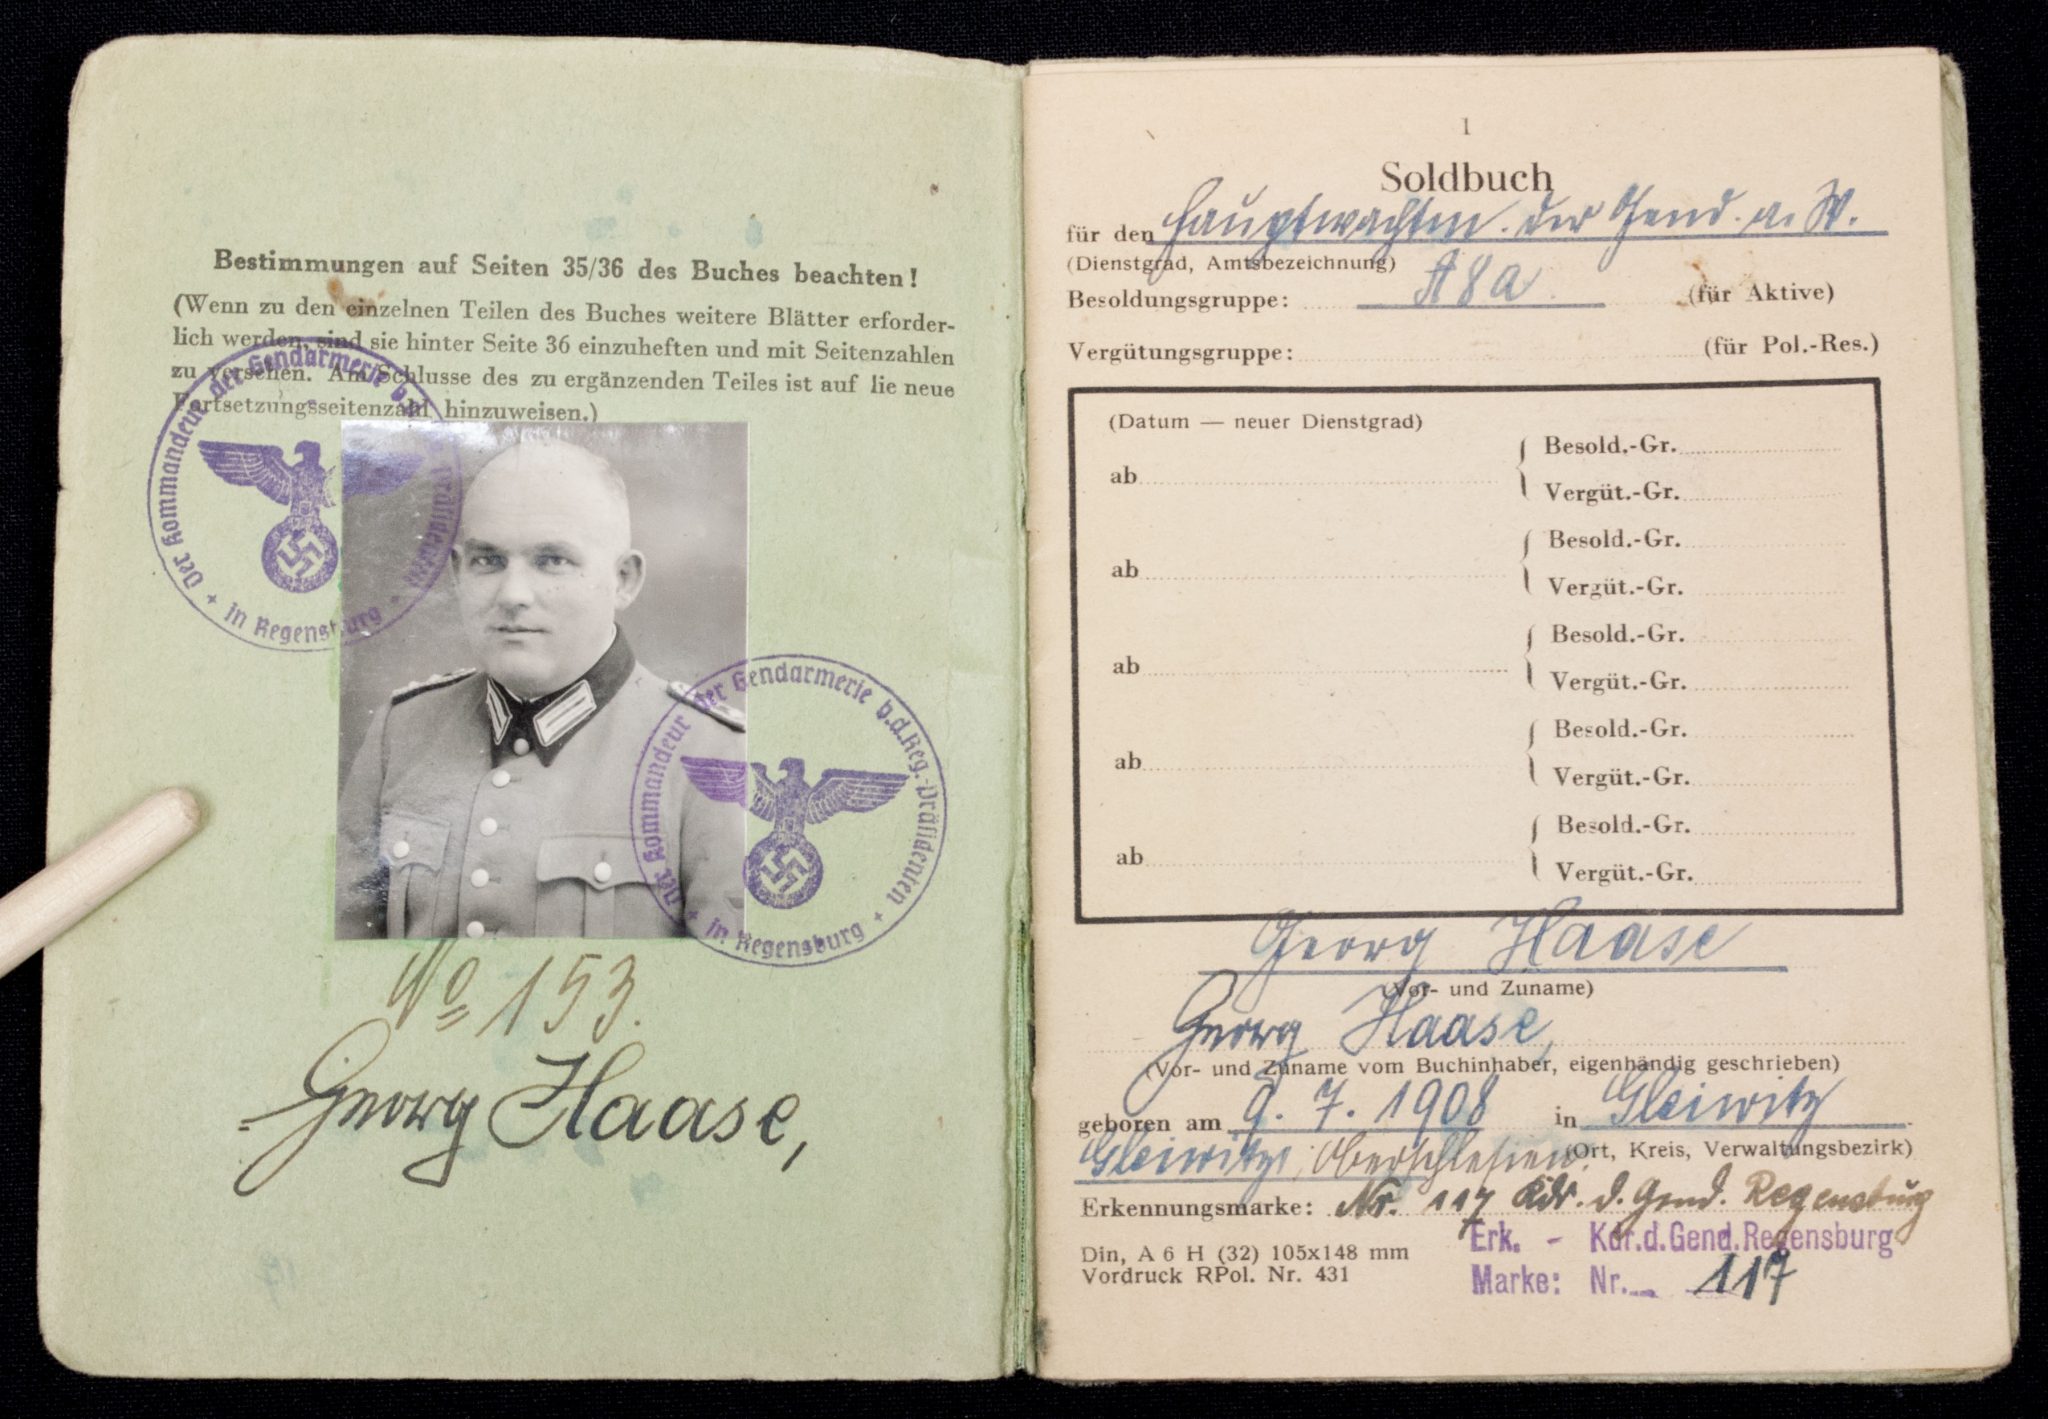 Bestimmungen auf Seiten 35/36 des Buches beachten!
(Wenn zu den einzelnen Teilen des Buches weitere Blätter erforder-
lich werden, sind sie hinter Seite 36 einzuheften und mit Seitenzahlen
zu versehen. Am Schlusse des zu ergänzenden Teiles ist auf lie neue
Fortsetzungsseitenzahl hinzuweisen.)
Der Kommandeur der Gendarmerie b.d. Präsidenten + in Regensburg +
Der Kommandeur der Gendarmerie b.d.Reg.-Präsidenten + in Regensburg +
No 153.
Georg Haase,
1
Soldbuch
für den Hauptwachtm. der Gend. a. W.
(Dienstgrad, Amtsbezeichnung)
Besoldungsgruppe: A8a (für Aktive)
Vergütungsgruppe: (für Pol.-Res.)
(Datum — neuer Dienstgrad)
Besold.-Gr.
ab
Vergüt.-Gr.
Besold.-Gr.
ab
Vergüt.-Gr.
Besold.-Gr.
ab
Vergüt.-Gr.
Besold.-Gr.
ab
Vergüt.-Gr.
Besold.-Gr.
ab
Vergüt.-Gr.
Georg Haase
(Vor- und Zuname)
Georg Haase,
(Vor- und Zuname vom Buchinhaber, eigenhändig geschrieben)
geboren am 9. 7. 1908 in Gleiwitz
Gleiwitz, Oberschlesien. (Ort, Kreis, Verwaltungsbezirk)
Erkennungsmarke: Nr. 117 Kdr. d. Gend. Regensburg
Erk. - Kdr.d.Gend.Regensburg
Din, A 6 H (32) 105x148 mm
Vordruck RPol. Nr. 431
Marke: Nr. 117